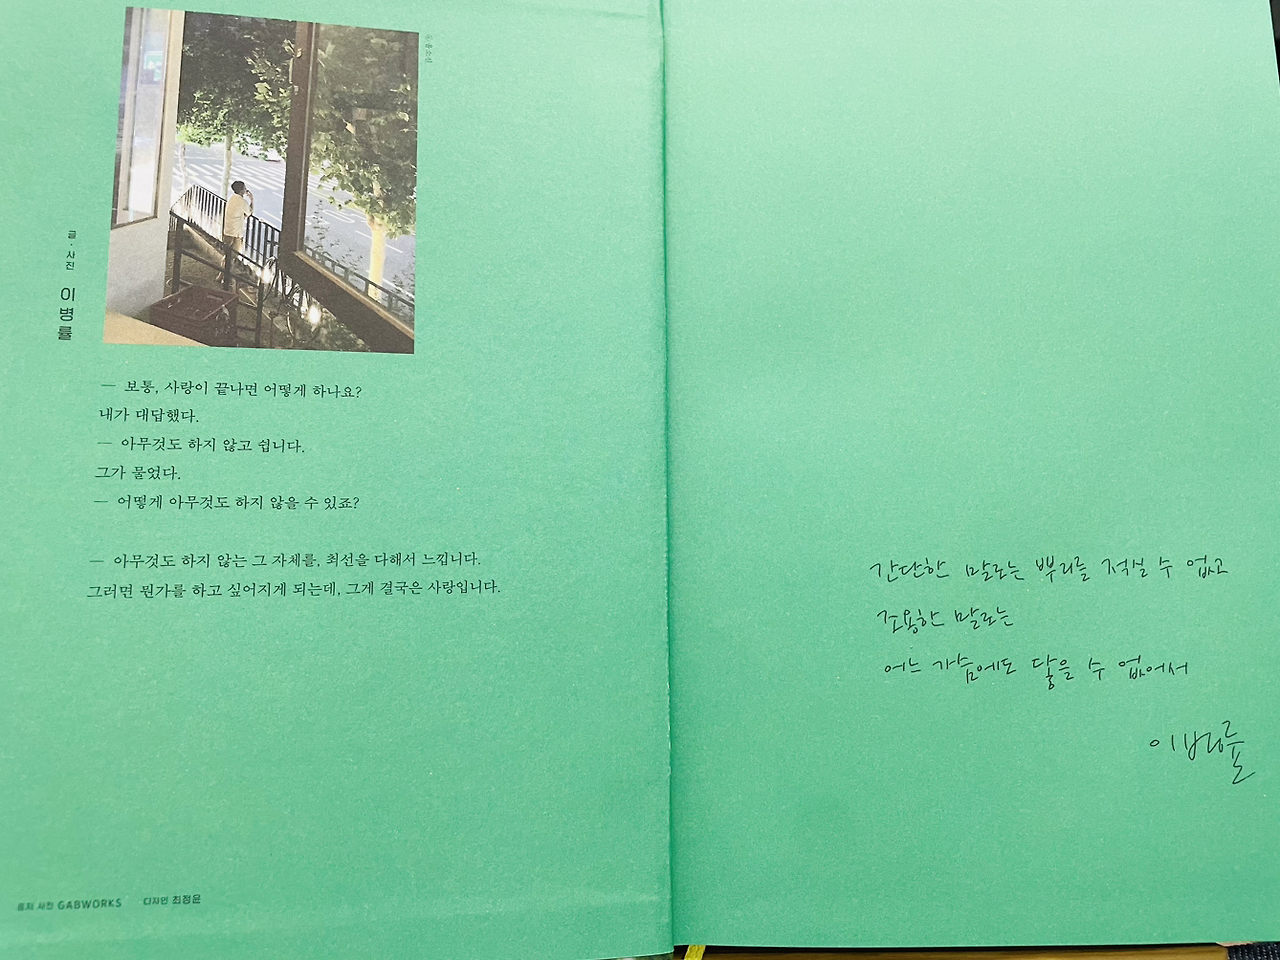 글·사진 이병률
— 보통, 사랑이 끝나면 어떻게 하나요?
내가 대답했다.
— 아무것도 하지 않고 쉽니다.
그가 물었다.
— 어떻게 아무것도 하지 않을 수 있죠?
— 아무것도 하지 않는 그 자체를, 최선을 다해서 느낍니다.
그러면 뭔가를 하고 싶어지게 되는데, 그게 결국은 사랑입니다.
표지 사진 GABWORKS 디자인 최정윤
간단한 말로는 뿌리를 적실 수 없고
조용한 말로는
어느 가슴에도 닿을 수 없어서
이병률